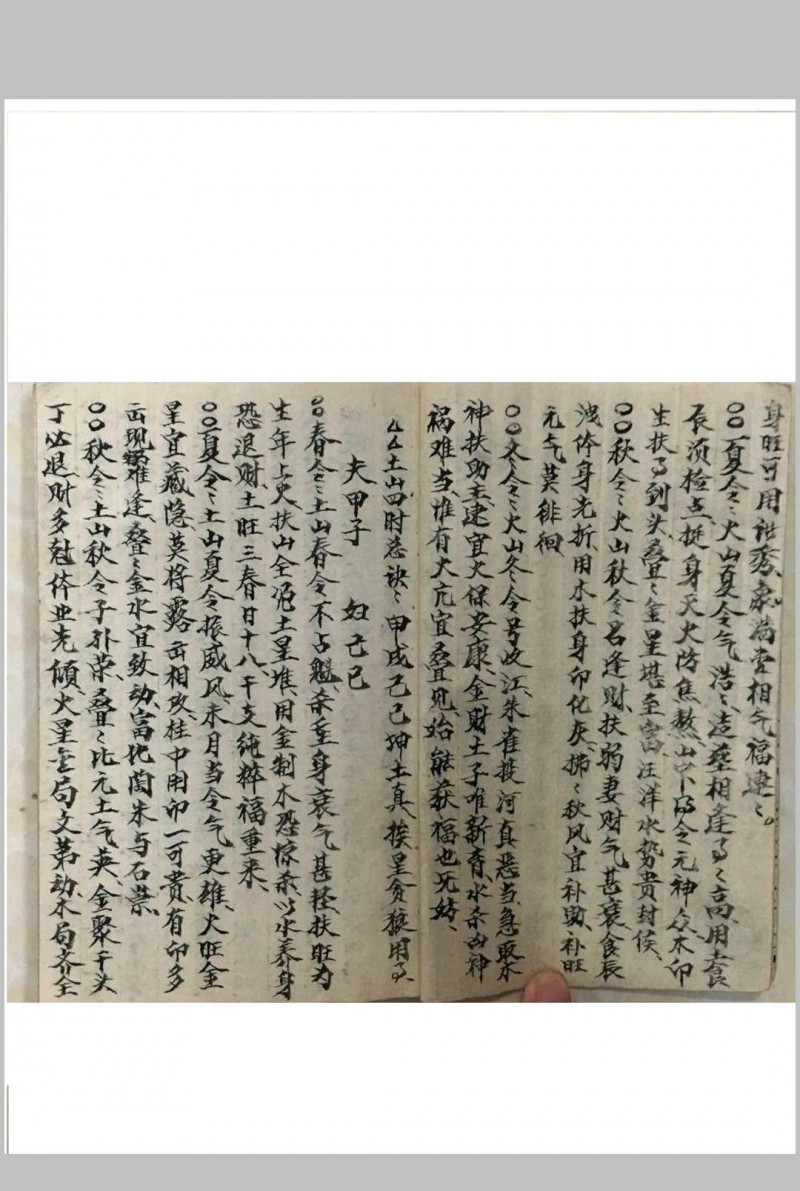 身旺可用泄秀、象满堂相气福建〻。
〇〇夏令〻火山夏令气浩〻、造墓相逢馬〻高、用土食
辰须检点、挺身天火防焦熬、山中令元神众、木印
生扶到头、叠〻金星堪至富、汪洋水势贵封侯、
〇〇秋令〻火山秋令名逢财、扶弱妻财气甚衰、食辰
洩体身先折、用木扶身印化灰、拂〻秋风宜补助、补旺
元气莫徘徊、
〇〇冬令〻火山冬令号收江、朱雀投河真恶当、急取木
神扶助主、逮宜火保安康、金财土子唯薪育、水杀凶神
祸难当、惟有火亢宜叠见、始能获福也无妨、
△△土山四时总诀〻甲戌己己坤土真、挨星贪狼用
夫甲子 妇己巳
〇〇春令〻土山春令不占魁、杀重身衰气甚轻、扶旺为
生年上火、扶山全凭土星堆、用金制木恐惊杀、以水养身
恐退财、土旺三春日十八、干支纯粹福重来、
〇〇夏令〻土山夏令振威风、未月当令气更雄、火旺金
星宜藏隐、莫将露出相攻、柱中用印一可贵、有印多
出现祸难逢、叠〻金水宜致动、富比陶朱与石崇、
〇〇秋令〻土山秋令子外荣、叠〻比元土气英、金聚干头
丁必退、财多克体业先倾、火星全局文第动、木局齐全